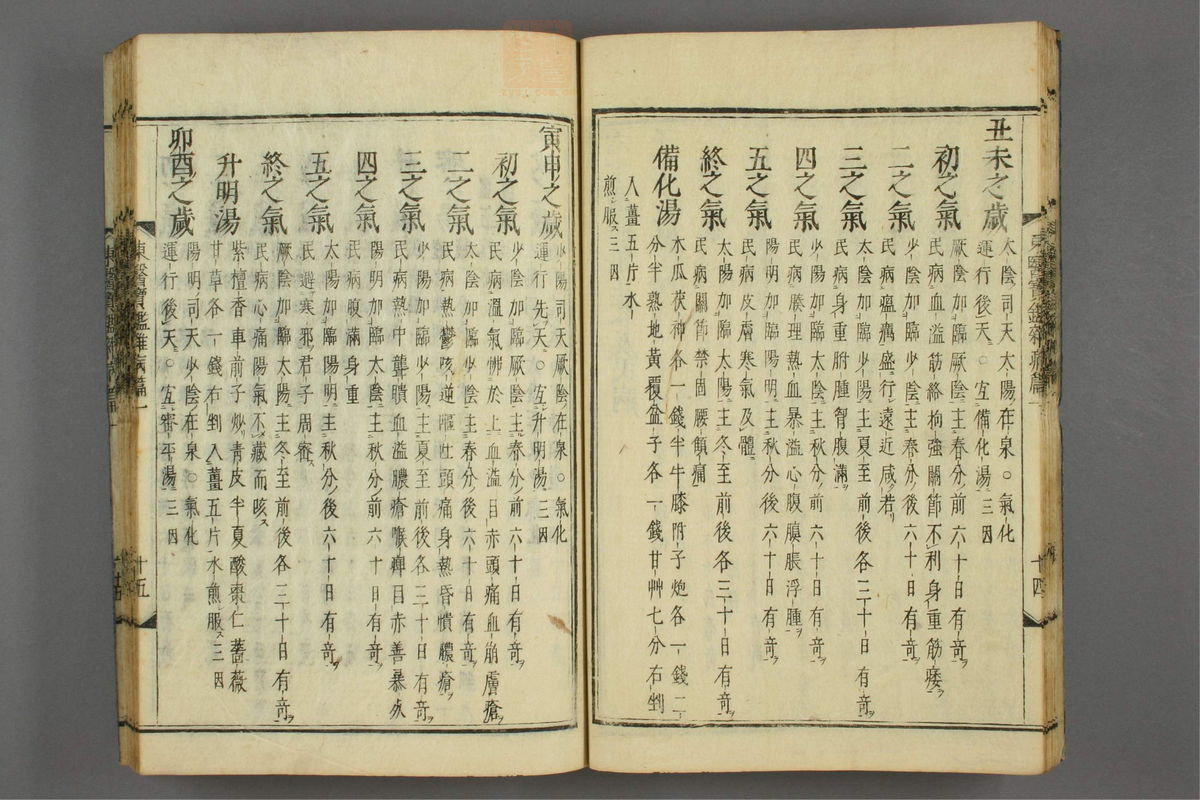 丑未之歲
太陰司天太陽在泉○氣化
運行後天○宜備化湯三因
初之氣
厥陰加臨厥陰主春分前六十日有奇
民病血溢筋絡拘強關節不利身重筋痿
二之氣
少陰加臨少陰主春分後六十日有奇
民病瘟癘盛行遠近咸若
三之氣
太陰加臨少陽主夏至前後各三十日有奇
民病身重胕腫胷腹滿
四之氣
少陽加臨太陰主秋分前六十日有奇
民病腠理熱血暴溢心腹䐜脹浮腫
五之氣
陽明加臨陽明主秋分後六十日有奇
民病皮膚寒氣及體
終之氣
太陽加臨太陽主冬至前後各三十日有奇
民病關節禁固腰腿痛
備化湯
木瓜茯神各一錢半牛膝附子炮各一錢二
分半熟地黃覆盆子各一錢甘艸七分右剉
入薑五片水
煎服三因
東醫寶鑑雜病篇一
十四
寅申之歲
少陽司天厥陰在泉○氣化
運行先天○宜升明湯三因
初之氣
少陰加臨厥陰主春分前六十日有奇
民病溫氣怫於上血溢目赤頭痛血崩膚瘡
二之氣
太陰加臨少陰主春分後六十日有奇
民病熱鬱咳逆嘔吐頭痛身熱昏憒膿瘡
三之氣
少陽加臨少陽主夏至前後各三十日有奇
民病熱中聾瞶血溢膿瘡喉痺目赤善暴死
四之氣
陽明加臨太陰主秋分前六十日有奇
民病腹滿身重
五之氣
太陽加臨陽明主秋分後六十日有奇
民避寒邪君子周密
終之氣
厥陰加臨太陽主冬至前後各三十日有奇
民病心痛陽氣不藏而咳
升明湯
紫檀香車前子炒青皮半夏酸棗仁薔薇
甘草各一錢右剉入薑五片水煎服三因
卯酉之歲
陽明司天少陰在泉○氣化
運行後天○宜審平湯三因
東醫寶鑑雜病篇一
十五